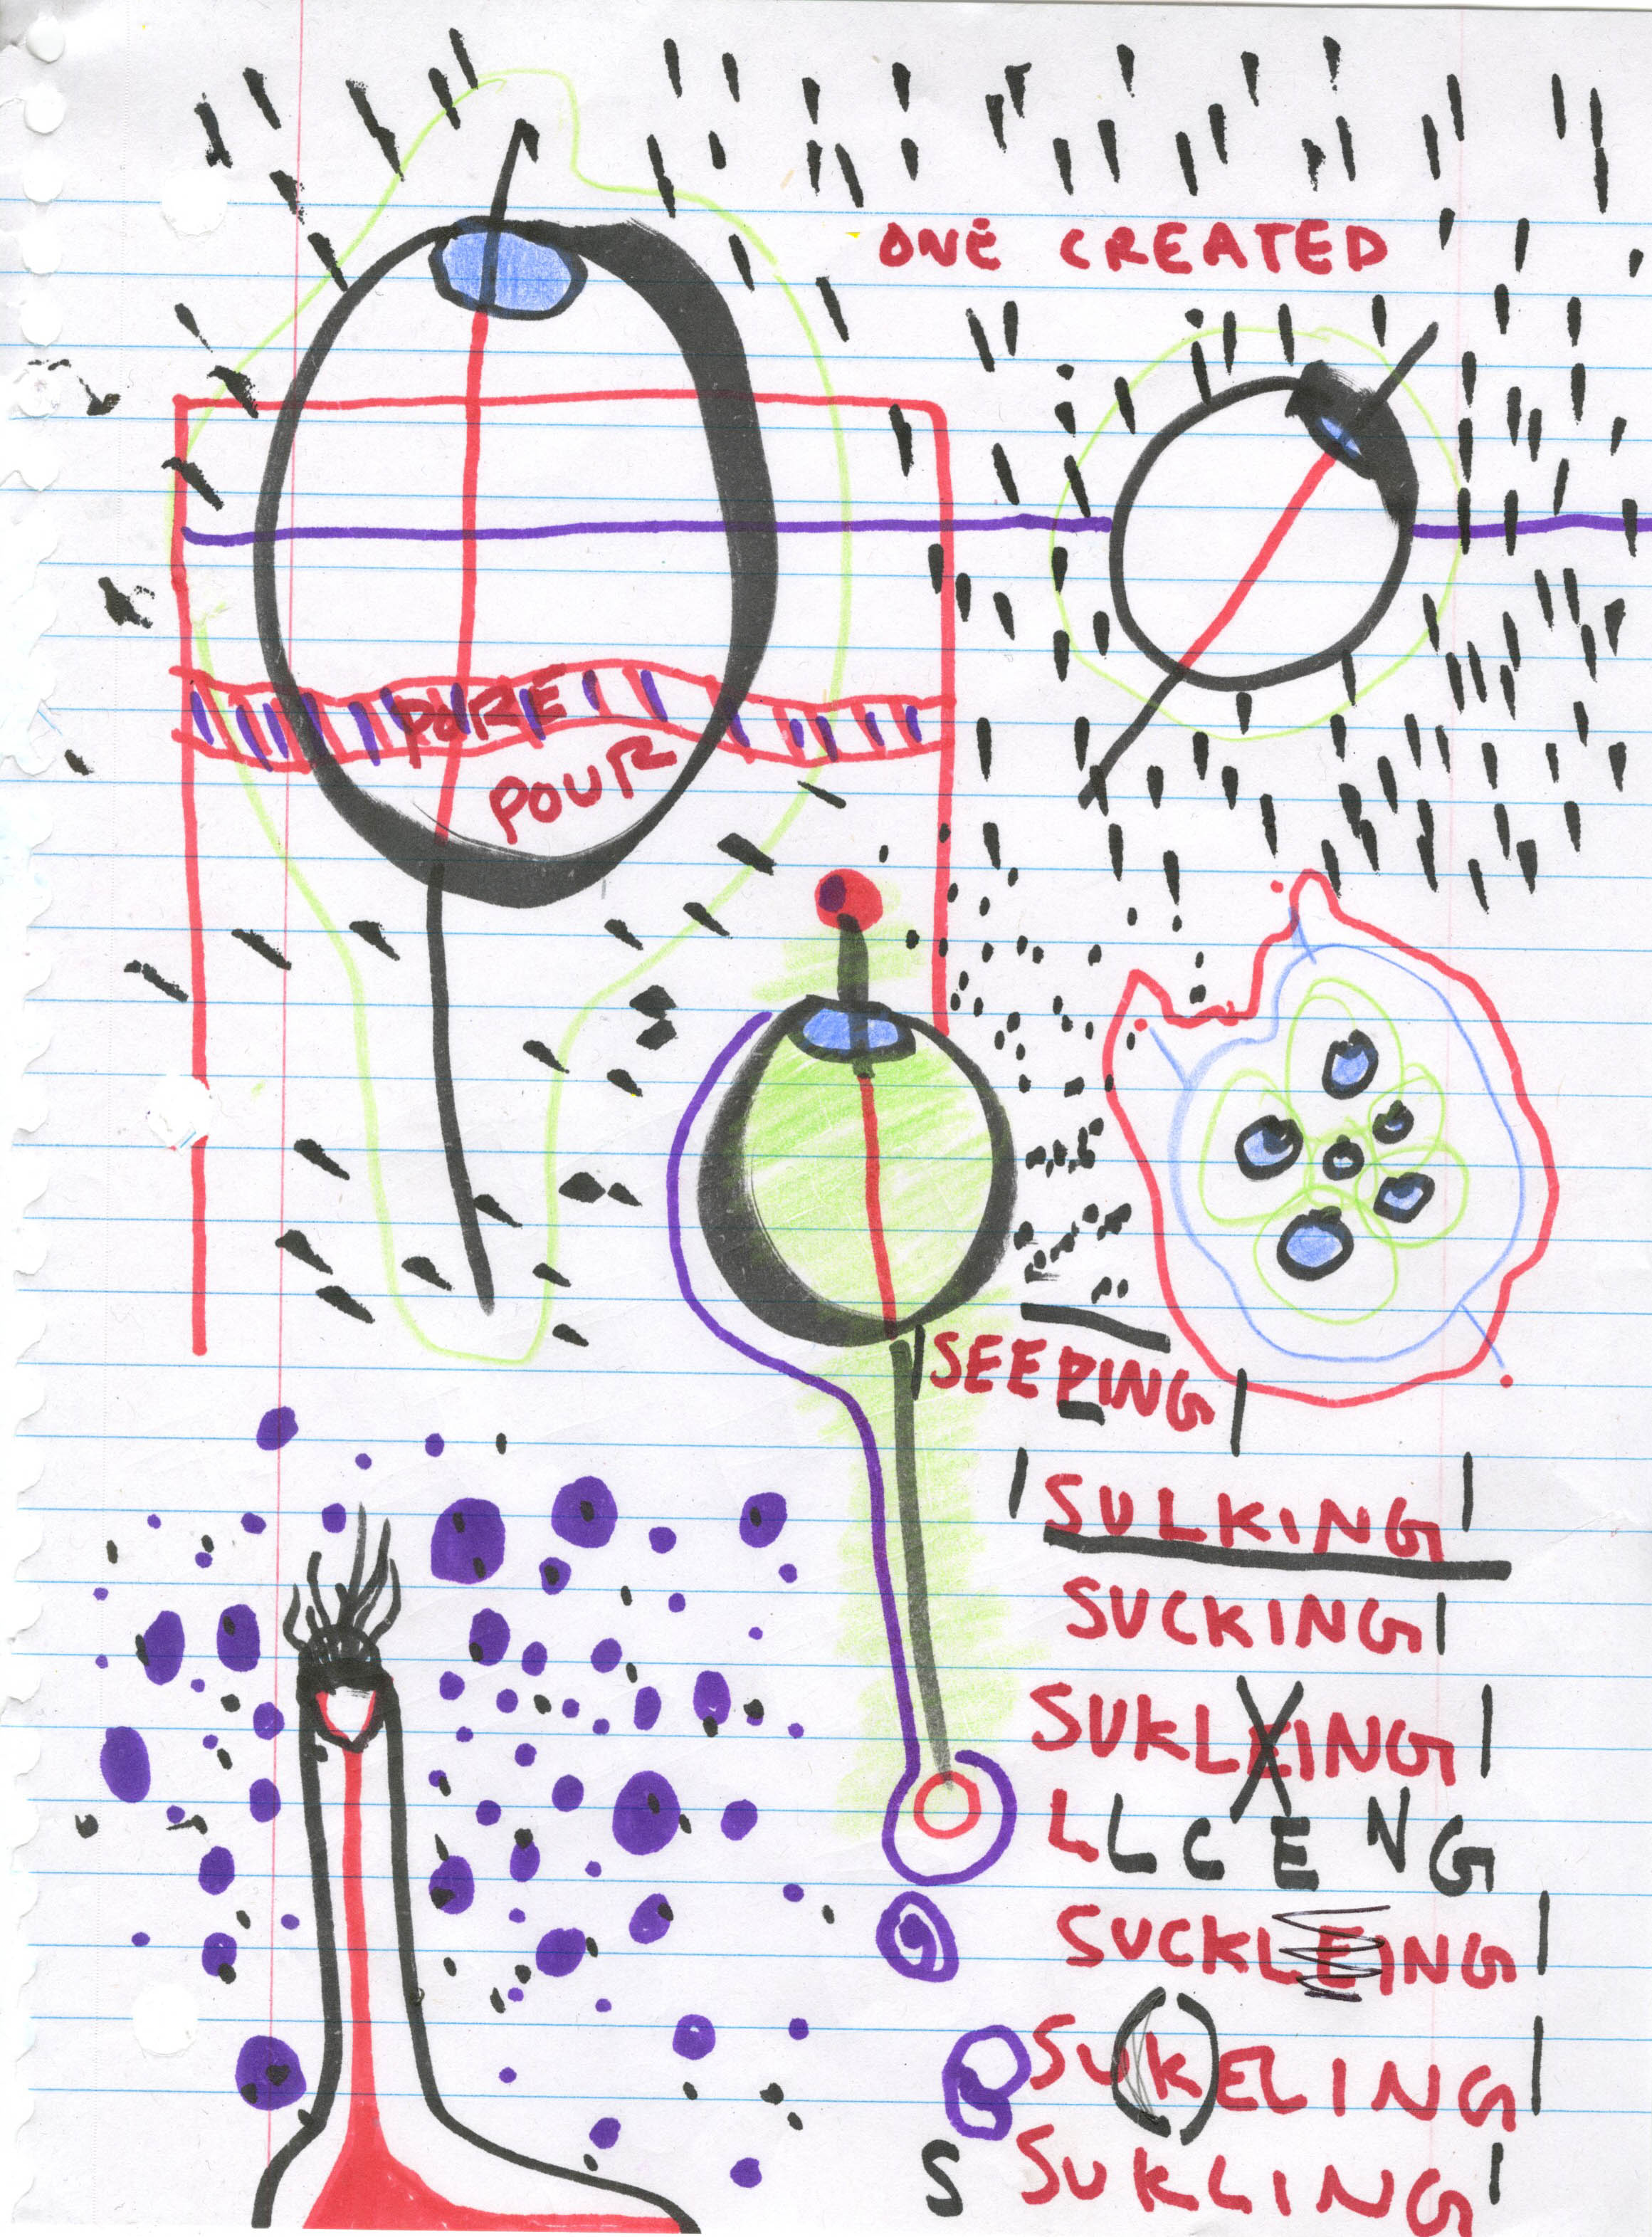 ONE CREATED
PURE
POUR
SEEPING
SULKING
SUCKING
SUKLEING
LLCENG
SUCKLEING
SU(K)ELING
S SUKLING